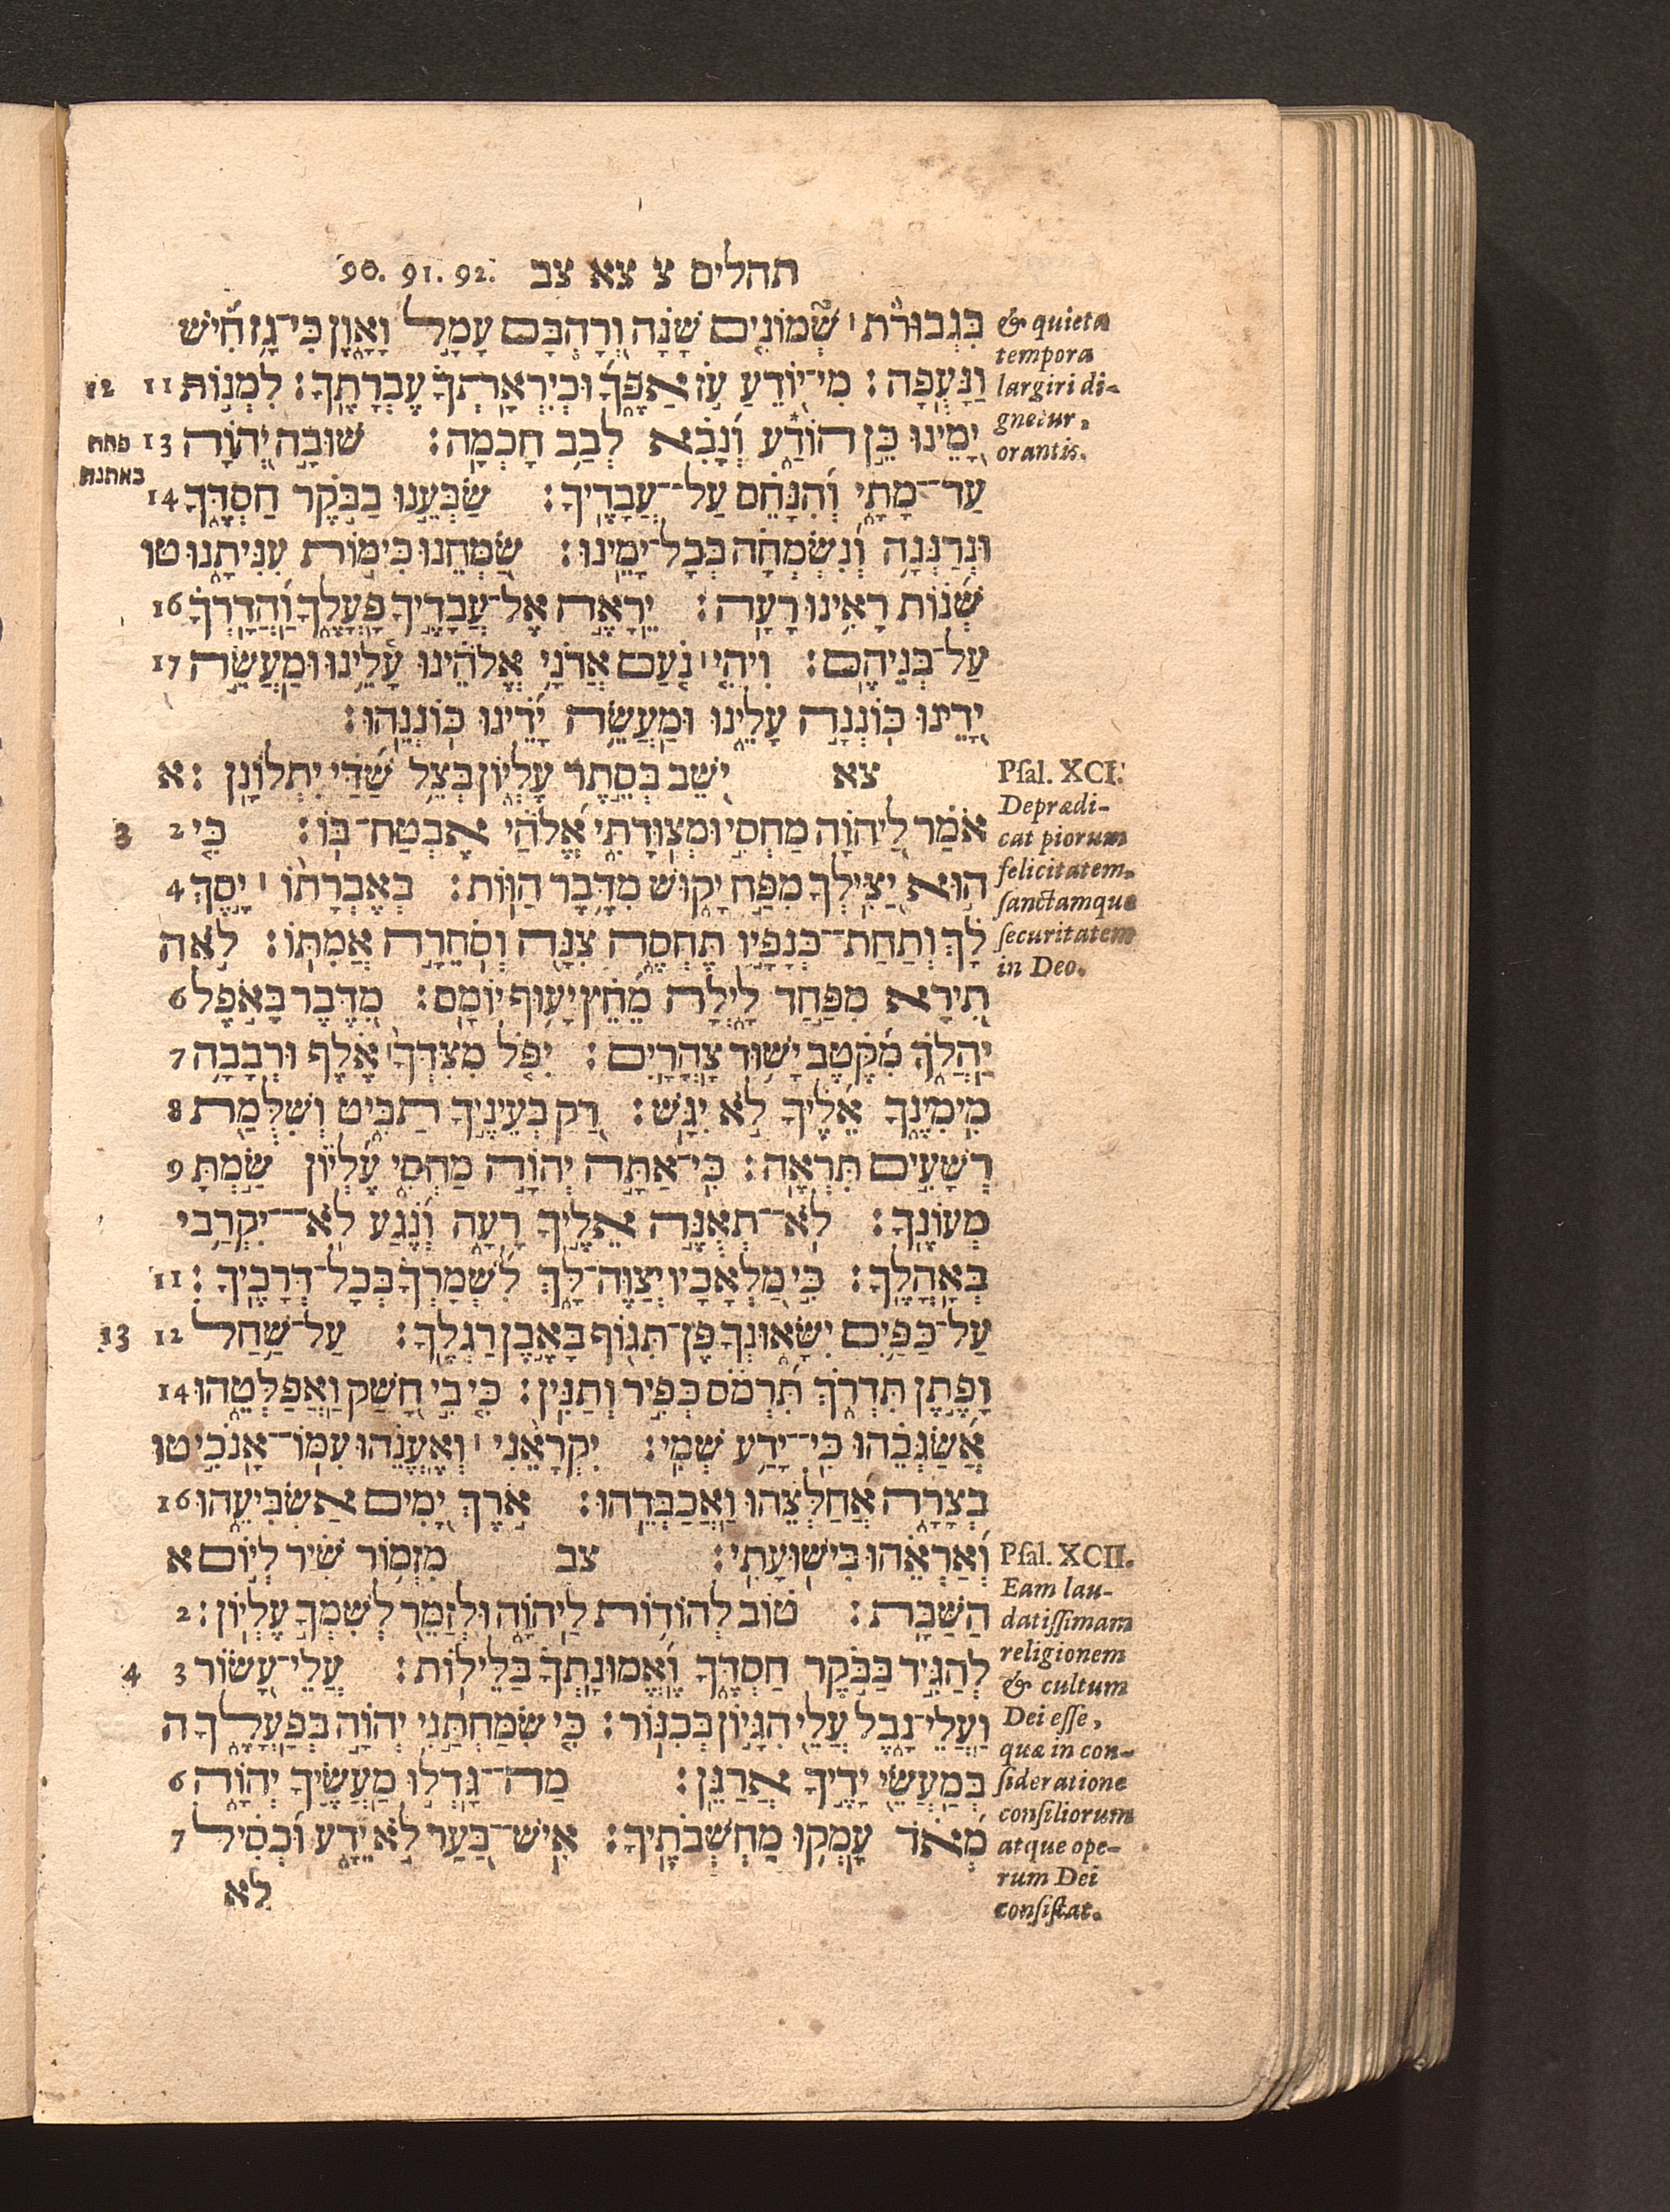 תהלים צ צא צב 90. 91. 92.
בִּגְבוּרֹת׀ שְׁמוֹנִים שָׁנָה וְרָהְבָּם עָמָל וָאָוֶן כִּי־גָז חִישׁ
וַנָּעֻפָה׃ מִי־יוֹדֵעַ עֹז אַפֶּךָ וּכְיִרְאָתְךָ עֶבְרָתֶךָ׃ לִמְנוֹת 11 12
יָמֵינוּ כֵּן הוֹדַע וְנָבִא לְבַב חָכְמָה׃ שׁוּבָה יְהוָֹה 13
פתח
באתנח
עַד־מָתָי וְהִנָּחֵם עַל־עֲבָדֶיךָ׃ שַׂבְּעֵנוּ בַבֹּקֶר חַסְדֶּךָ 14
וּנְרַנְּנָה וְנִשְׂמְחָה בְּכָל־יָמֵינוּ׃ שַׂמְּחֵנוּ כִּימוֹת עִנִּיתָנוּ טו
שְׁנוֹת רָאִינוּ רָעָה׃ יֵרָאֶה אֶל־עֲבָדֶיךָ פָעֳלֶךָ וַהֲדָרְךָ 16
עַל־בְּנֵיהֶם׃ וִיהִי׀ נֹעַם אֲדֹנָי אֱלֹהֵינוּ עָלֵינוּ וּמַעֲשֵׂה 17
יָדֵינוּ כּוֹנְנָה עָלֵינוּ וּמַעֲשֵׂה יָדֵינוּ כּוֹנְנֵהוּ׃
צא יֹשֵׁב בְּסֵתֶר עֶלְיוֹן בְּצֵל שַׁדַּי יִתְלוֹנָן׃ א
אֹמַר לַיהוָֹה מַחְסִי וּמְצוּדָתִי אֱלֹהַי אֶבְטַח־בּוֹ׃ כִּי 2 3
הוּא יַצִּילְךָ מִפַּח יָקוּשׁ מִדֶּבֶר הַוּוֹת׃ בְּאֶבְרָתוֹ׀ יָסֶךְ 4
לָךְ וְתַחַת־כְּנָפָיו תֶּחְסֶה צִנָּה וְסֹחֵרָה אֲמִתּוֹ׃ לֹא ה
תִירָא מִפַּחַד לָיְלָה מֵחֵץ יָעוּף יוֹמָם׃ מִדֶּבֶר בָּאֹפֶל 6
יַהֲלֹךְ מִקֶּטֶב יָשׁוּד צָהֳרָיִם׃ יִפֹּל מִצִּדְּךָ׀ אֶלֶף וּרְבָבָה 7
מִימִינֶךָ אֵלֶיךָ לֹא יִגָּשׁ׃ רַק בְּעֵינֶיךָ תַבִּיט וְשִׁלֻּמַת 8
רְשָׁעִים תִּרְאֶה׃ כִּי־אַתָּה יְהוָֹה מַחְסִי עֶלְיוֹן שַׂמְתָּ 9
מְעוֹנֶךָ׃ לֹא־תְאֻנֶּה אֵלֶיךָ רָעָה וְנֶגַע לֹא־יִקְרַב י
בְּאָהֳלֶךָ׃ כִּי מַלְאָכָיו יְצַוֶּה־לָּךְ לִשְׁמָרְךָ בְּכָל־דְּרָכֶיךָ׃ 11
עַל־כַּפַּיִם יִשָּׂאוּנְךָ פֶּן־תִּגּוֹף בָּאֶבֶן רַגְלֶךָ׃ עַל־שַׁחַל 12 13
וָפֶתֶן תִּדְרֹךְ תִּרְמֹס כְּפִיר וְתַנִּין׃ כִּי בִי חָשַׁק וַאֲפַלְּטֵהוּ 14
אֲשַׂגְּבֵהוּ כִּי־יָדַע שְׁמִי׃ יִקְרָאֵנִי׀ וְאֶעֱנֵהוּ עִמּוֹ־אָנֹכִי טו
בְצָרָה אֲחַלְּצֵהוּ וַאֲכַבְּדֵהוּ׃ אֹרֶךְ יָמִים אַשְׂבִּיעֵהוּ 16
וְאַרְאֵהוּ בִּישׁוּעָתִי׃ צב מִזְמוֹר שִׁיר לְיוֹם א
הַשַּׁבָּת׃ טוֹב לְהוֹדוֹת לַיהוָֹה וּלְזַמֵּר לְשִׁמְךָ עֶלְיוֹן׃ 2
לְהַגִּיד בַּבֹּקֶר חַסְדֶּךָ וֶאֱמוּנָתְךָ בַּלֵּילוֹת׃ עֲלֵי־עָשׂוֹר 3 4
וַעֲלֵי־נָבֶל עֲלֵי הִגָּיוֹן בְּכִנּוֹר׃ כִּי שִׂמַּחְתַּנִי יְהוָֹה בְּפָעֳלֶךָ ה
בְּמַעֲשֵׂי יָדֶיךָ אֲרַנֵּן׃ מַה־גָּדְלוּ מַעֲשֶׂיךָ יְהוָֹה 6
מְאֹד עָמְקוּ מַחְשְׁבֹתֶיךָ׃ אִישׁ־בַּעַר לֹא יֵדָע וּכְסִיל 7
לֹא
& quieta
tempora
largiri di-
gnetur,
orantis.
Psal. XCI.
Deprædi-
cat piorum
felicitatem,
sanctamque
securitatem
in Deo.
Psal. XCII.
Eam lau-
datissimam
religionem
& cultum
Dei esse,
quæ in con-
sideratione
consiliorum
atque ope-
rum Dei
consistat.